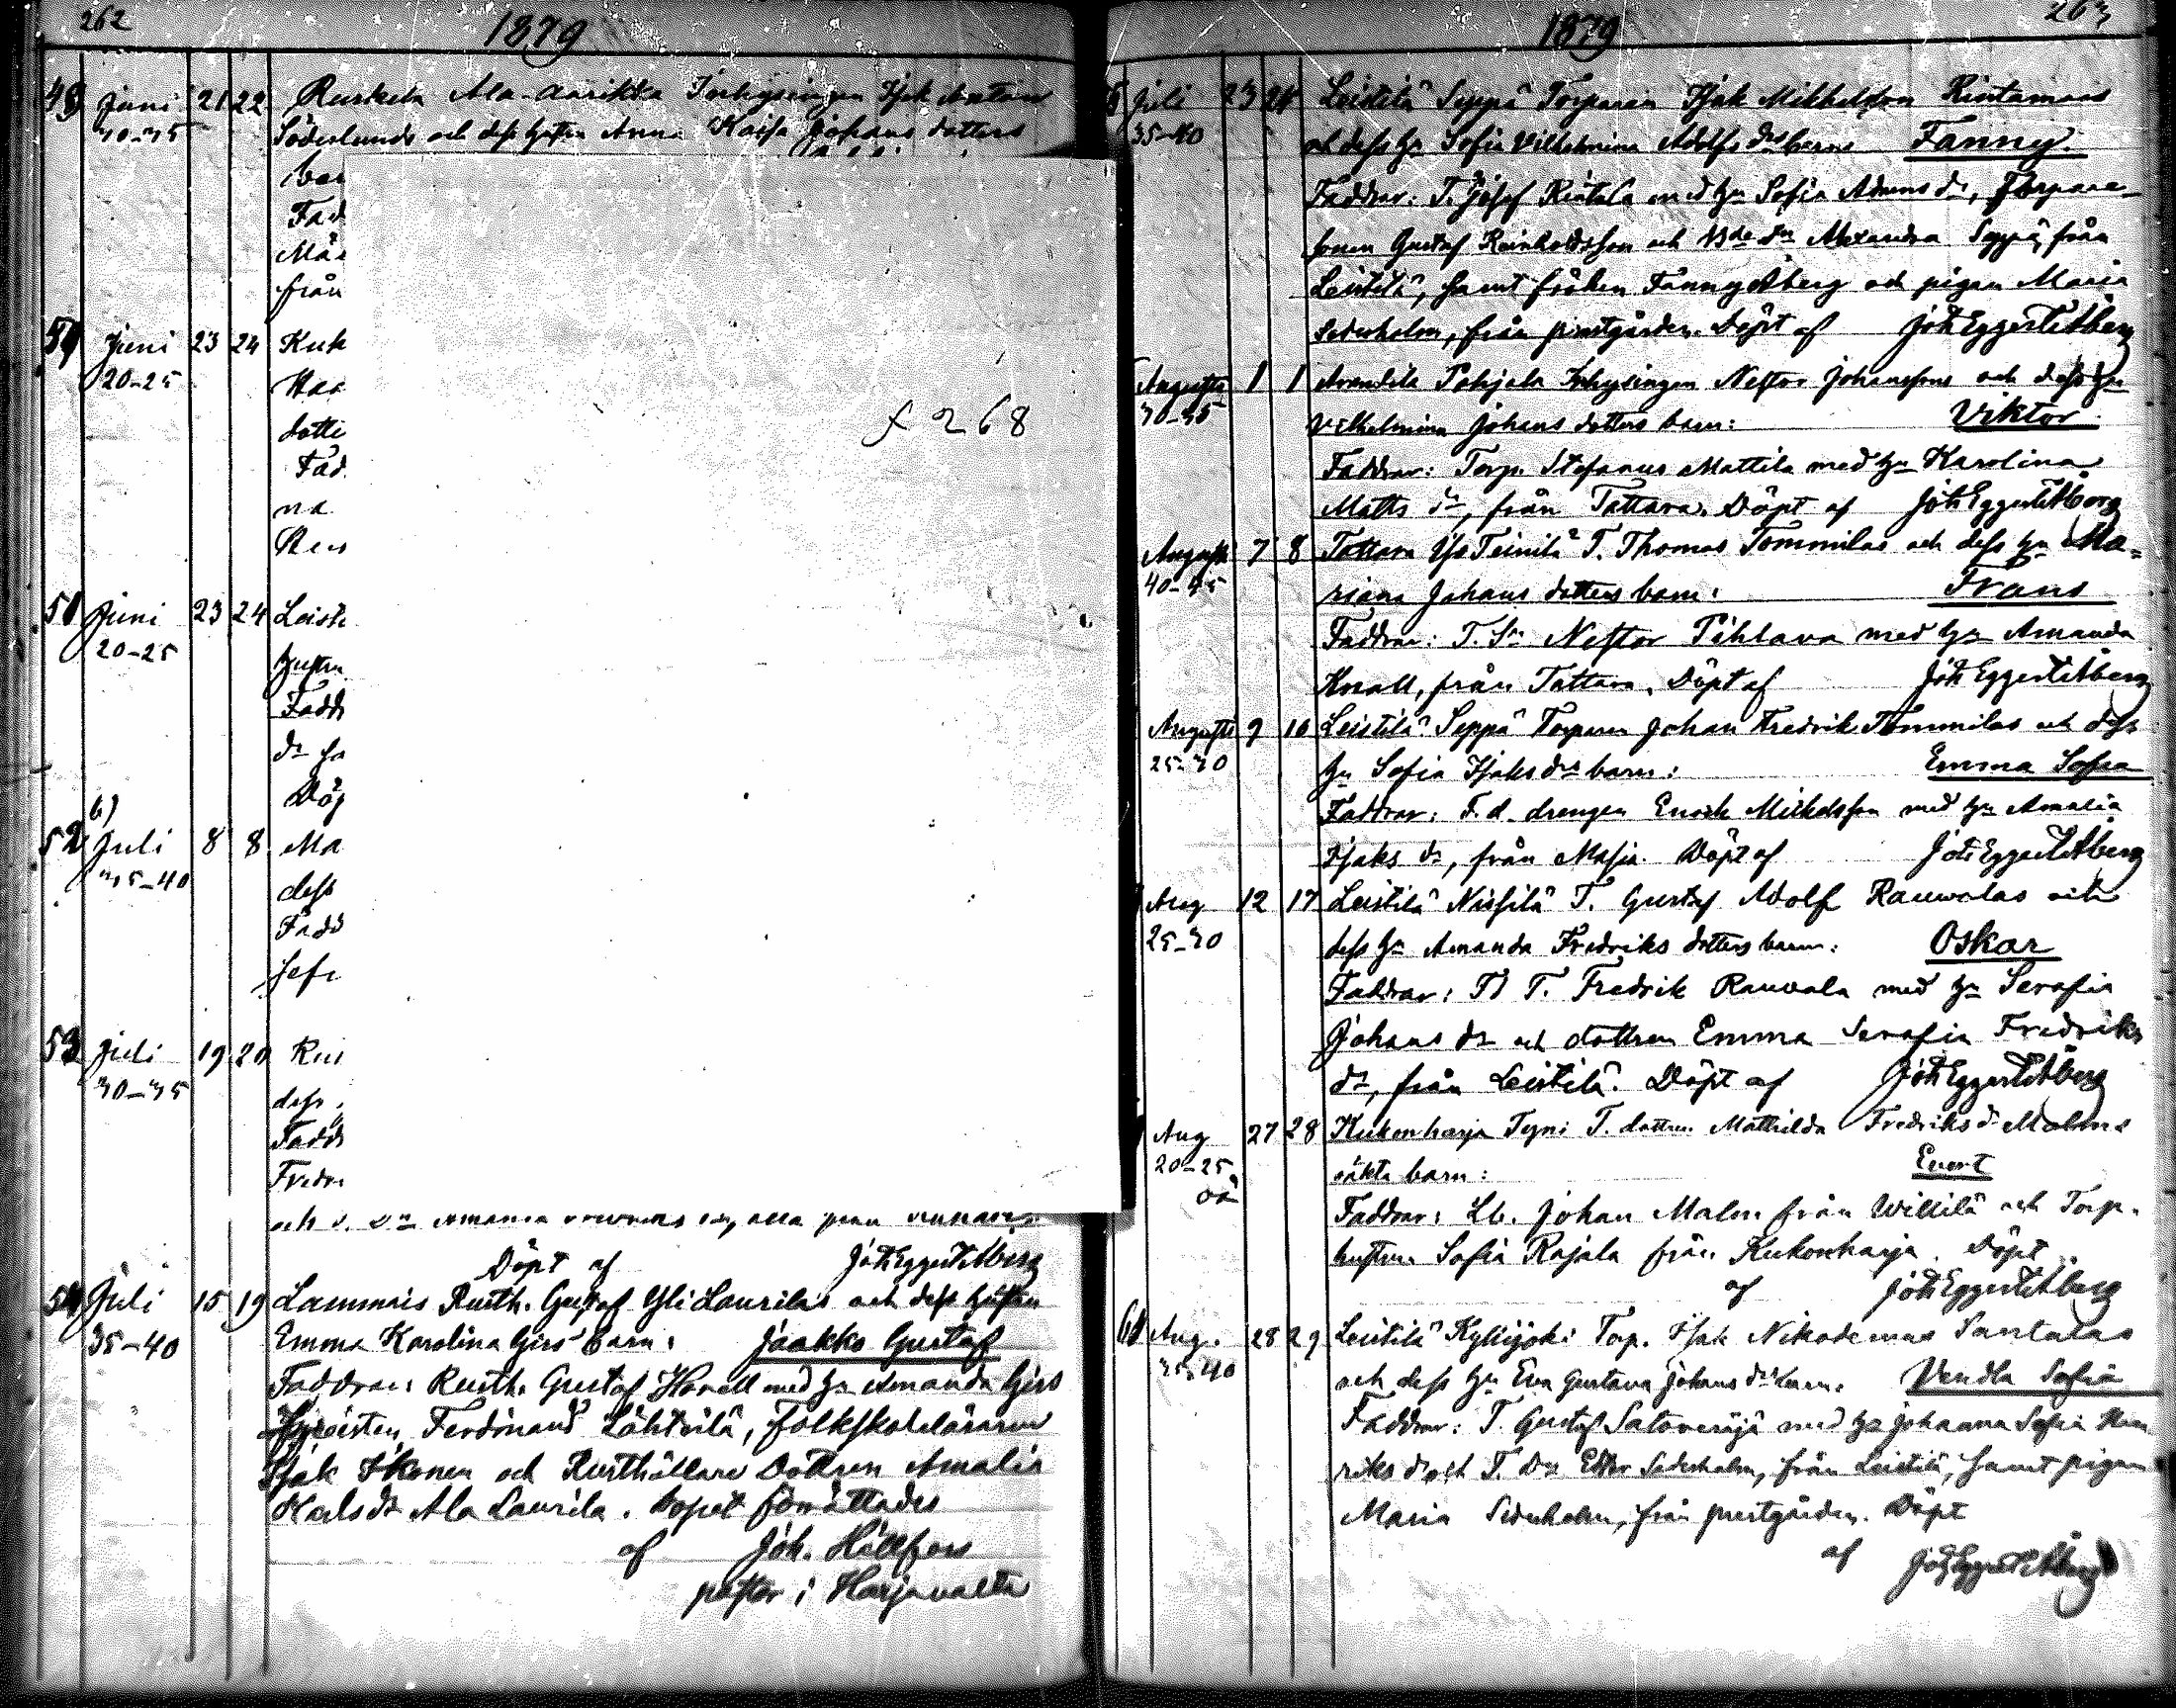 262
1879
49 Juni 21 22 Ruskela Ala-Aarikka Inhysingen Isak Antton
30-35 Söderlunds och dess hustru Anna Kaisa Johans dotters
bar
Fad
från
50 Juni 23 24 Kuk
20-25
dotte
Fad
na
Rus
51 Juni 23 24 Leisti
20-25 hustru
Fadd
dr
Döp
6)
52 Juli 8 8 Ma
35-40 dess
Fadd
f 268
53 Juli 19 20 Rus
30-35 dess
Fadd
Fredr
Döpt af Joh Eggert Åberg
54 Juli 15 19 Lammais Rusth. Gustaf Yli Laurilas och dess hustru
35-40 Emma Karolina Girs barn: Jaakko Gustaf
Faddrar: Rusth. Gustaf Horell med hu Amanda Girs
Ferdinand Lähteilä, folkskoleläraren
Isak Ikonen och Rusthållare dottren Amalia
Karls dr Ala Laurila. Dopet förrättades
af Joh. Hällfors
pastor i Harjavalta
263
1879
Juli 23 24 Leistilä Seppä Torparen Isak Mikkelsson Rintamaas
35-40 och dess hu Sofia Vilhelmina Adolfs drs barn Fanny.
Faddrar: T. Josef Rintala med hu Sofia Adams dr, Torpare-
sonen Gustaf Reinholdsson och Alexandra Seppä, från
Leistilä, samt fröken Fanny Åberg och pigan Maria
Sederholm, från prestgården. Döpt af Joh Eggert Åberg
Augusti 1 1 Arantila Pohjala Inhysingen Nestor Johanssons och dess hu
30-35 Vilhelmina Johans dotters barn: Viktor
Faddrar: Torp. Stefanus Mattila med hu Karolina
Matts dr, från Tattara. Döpt af Joh Eggert Åberg
Augusti 7 8 Tattara Yli Teinilä T. Thomas Tommilas och dess hu Ma-
40-45 riana Johans dotters barn: Frans
Faddrar: T. Sn Nestor Pihlava med hu Amanda
Knall, från Tattara. Döpt af Joh Eggert Åberg
Augusti 9 16 Leistilä Seppä Torparen Johan Fredrik Tommilas och dess
25-30 hu Sofia Isaks drs barn: Emma Sofia
Faddrar: F.d. drengen Enock Mickelsson med hu Amalia
Isaks dr, från Masia. Döpt af Joh Eggert Åberg
Aug 12 17 Leistilä Nissilä T. Gustaf Adolf Rauwalas och
25-30 dess hu Amanda Fredriks dotters barn: Oskar
Faddrar: Fd T. Fredrik Rauwala med hu Serafia
Johans dr och dottren Emma Serafia Fredriks
dr, från Leistilä. Döpt af Joh Eggert Åberg
Aug 27 28 Kukonharja Tyni T. dottren Mathilda Fredriks dr Malms
20-25 oäkta barn: Evert
oä Faddrar: Lb. Johan Malm från Willilä och Torp.
hustrun Sofia Rajala från Kukonharja. Döpt
af Joh Eggert Åberg
Aug. 28 29 Leistilä Kylänjoki Torp. Isak Nikodemus Santalas
35-40 och dess hu Eva Gustava Johans drs barn: Vendla Sofia
Faddrar: T. Gustaf Satoveräjä med hu Johanna Sofia Hen
riks dr och T. Dr Sederholm, från Leistilä, samt pigan
Maria Sederholm, från prestgården. Döpt
af Joh Eggert Åberg